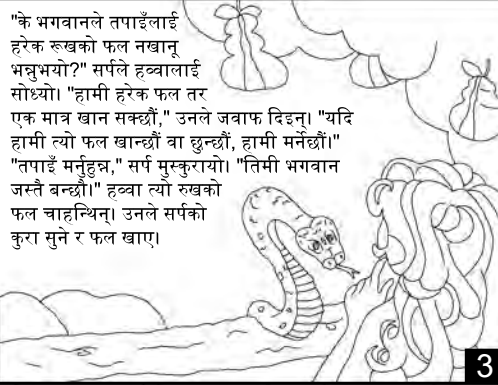 "के भगवानले तपाइँलाई
हरेक रूखको फल नखानू
भन्नुभयो?" सर्पले हव्वालाई
सोध्यो। "हामी हरेक फल तर
एक मात्र खान सक्छौं," उनले जवाफ दिइन्। "यदि
हामी त्यो फल खान्छौं वा छुन्छौं, हामी मर्नेछौं।"
"तपाइँ मर्नुहुन्न," सर्प मुस्कुरायो। "तिमी भगवान
जस्तै बन्छौ।" हव्वा त्यो रुखको
फल चाहन्थिन्। उनले सर्पको
कुरा सुने र फल खाए।
3